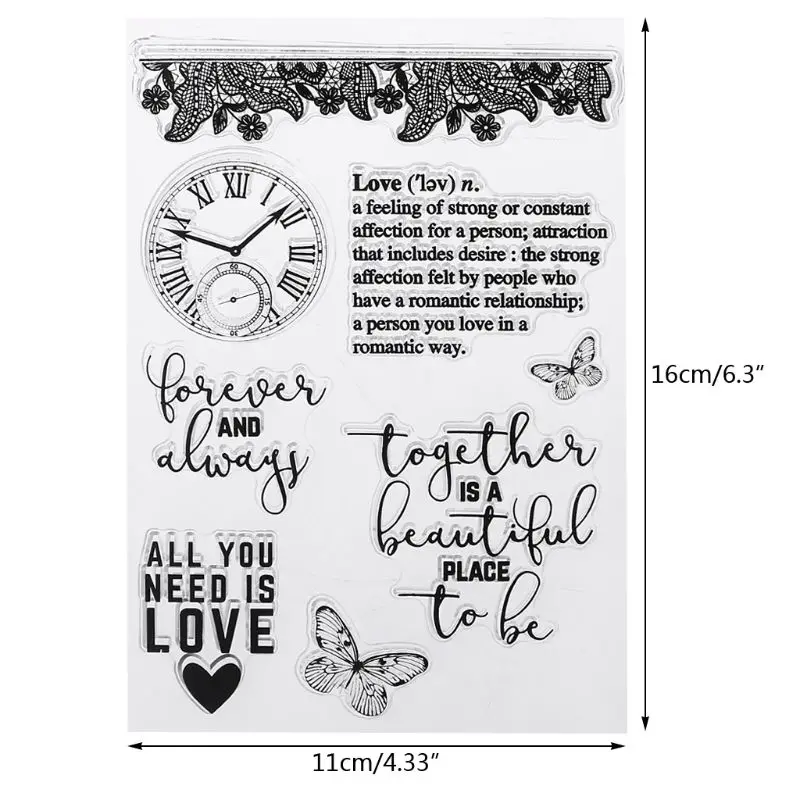 XII
I
II
III
IIII
V
VI
VII
VIII
IX
X
XI
60
15
30
45
Love ('ləv) n.
a feeling of strong or constant
affection for a person; attraction
that includes desire : the strong
affection felt by people who
have a romantic relationship;
a person you love in a
romantic way.
forever
AND
always
together
IS A
beautiful
PLACE
to be
ALL YOU
NEED IS
LOVE
16cm/6.3"
11cm/4.33"